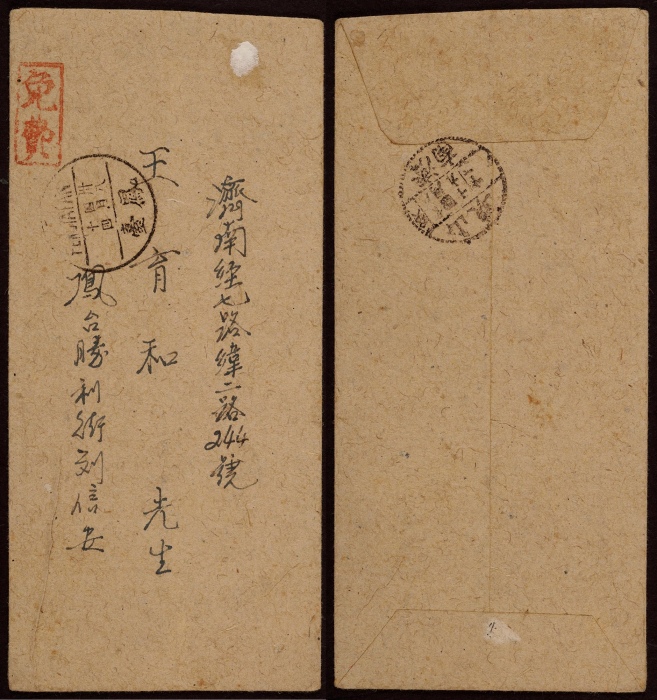 濟南經七路緯二路244號
王育和 先生
鳳台勝利街刘信安
免費
鳳臺